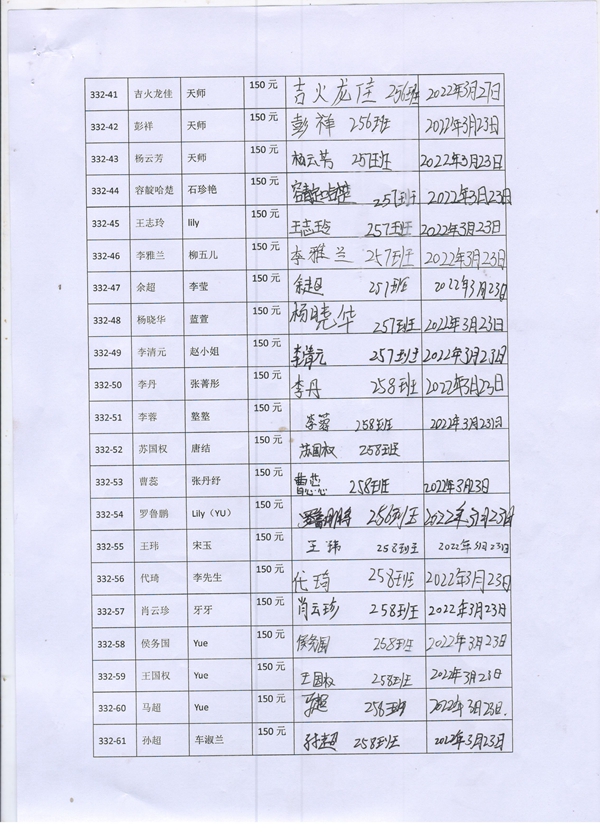 332-41 吉火龙佳 天师 150元 吉火龙佳 256班 2022年3月27日
332-42 彭祥 天师 150元 彭祥 256班 2022年3月23日
332-43 杨云芳 天师 150元 杨云芳 257班 2022年3月23日
332-44 容靛哈楚 石珍艳 150元 257班 2022年3月23日
332-45 王志玲 lily 150元 王志玲 257班 2022年3月23日
332-46 李雅兰 柳五儿 150元 李雅兰 257班 2022年3月23日
332-47 余超 李莹 150元 余超 257班 2022年3月23日
332-48 杨晓华 蓝萱 150元 杨晓华 257班 2022年3月23日
332-49 李清元 赵小姐 150元 李清元 257班 2022年3月23日
332-50 李丹 张菁彤 150元 李丹 258班 2022年3月23日
332-51 李蓉 整整 150元 李蓉 258班 2022年3月23日
332-52 苏国权 唐结 150元 苏国权 258班
332-53 曹蕊 张丹纾 150元 曹蕊 258班 2022年3月23日
332-54 罗鲁鹏 Lily（YU） 150元 罗鲁鹏 256班 2022年3月23日
332-55 王玮 宋玉 150元 王玮 258班 2022年3月23日
332-56 代琦 李先生 150元 代琦 258班 2022年3月23日
332-57 肖云珍 牙牙 150元 肖云珍 258班 2022年3月23日
332-58 侯务国 Yue 150元 侯务国 258班 2022年3月23日
332-59 王国权 Yue 150元 王国权 258班 2022年3月23日
332-60 马超 Yue 150元 马超 258班 2022年3月23日.
332-61 孙超 车淑兰 150元 孙超 258班 2022年3月23日